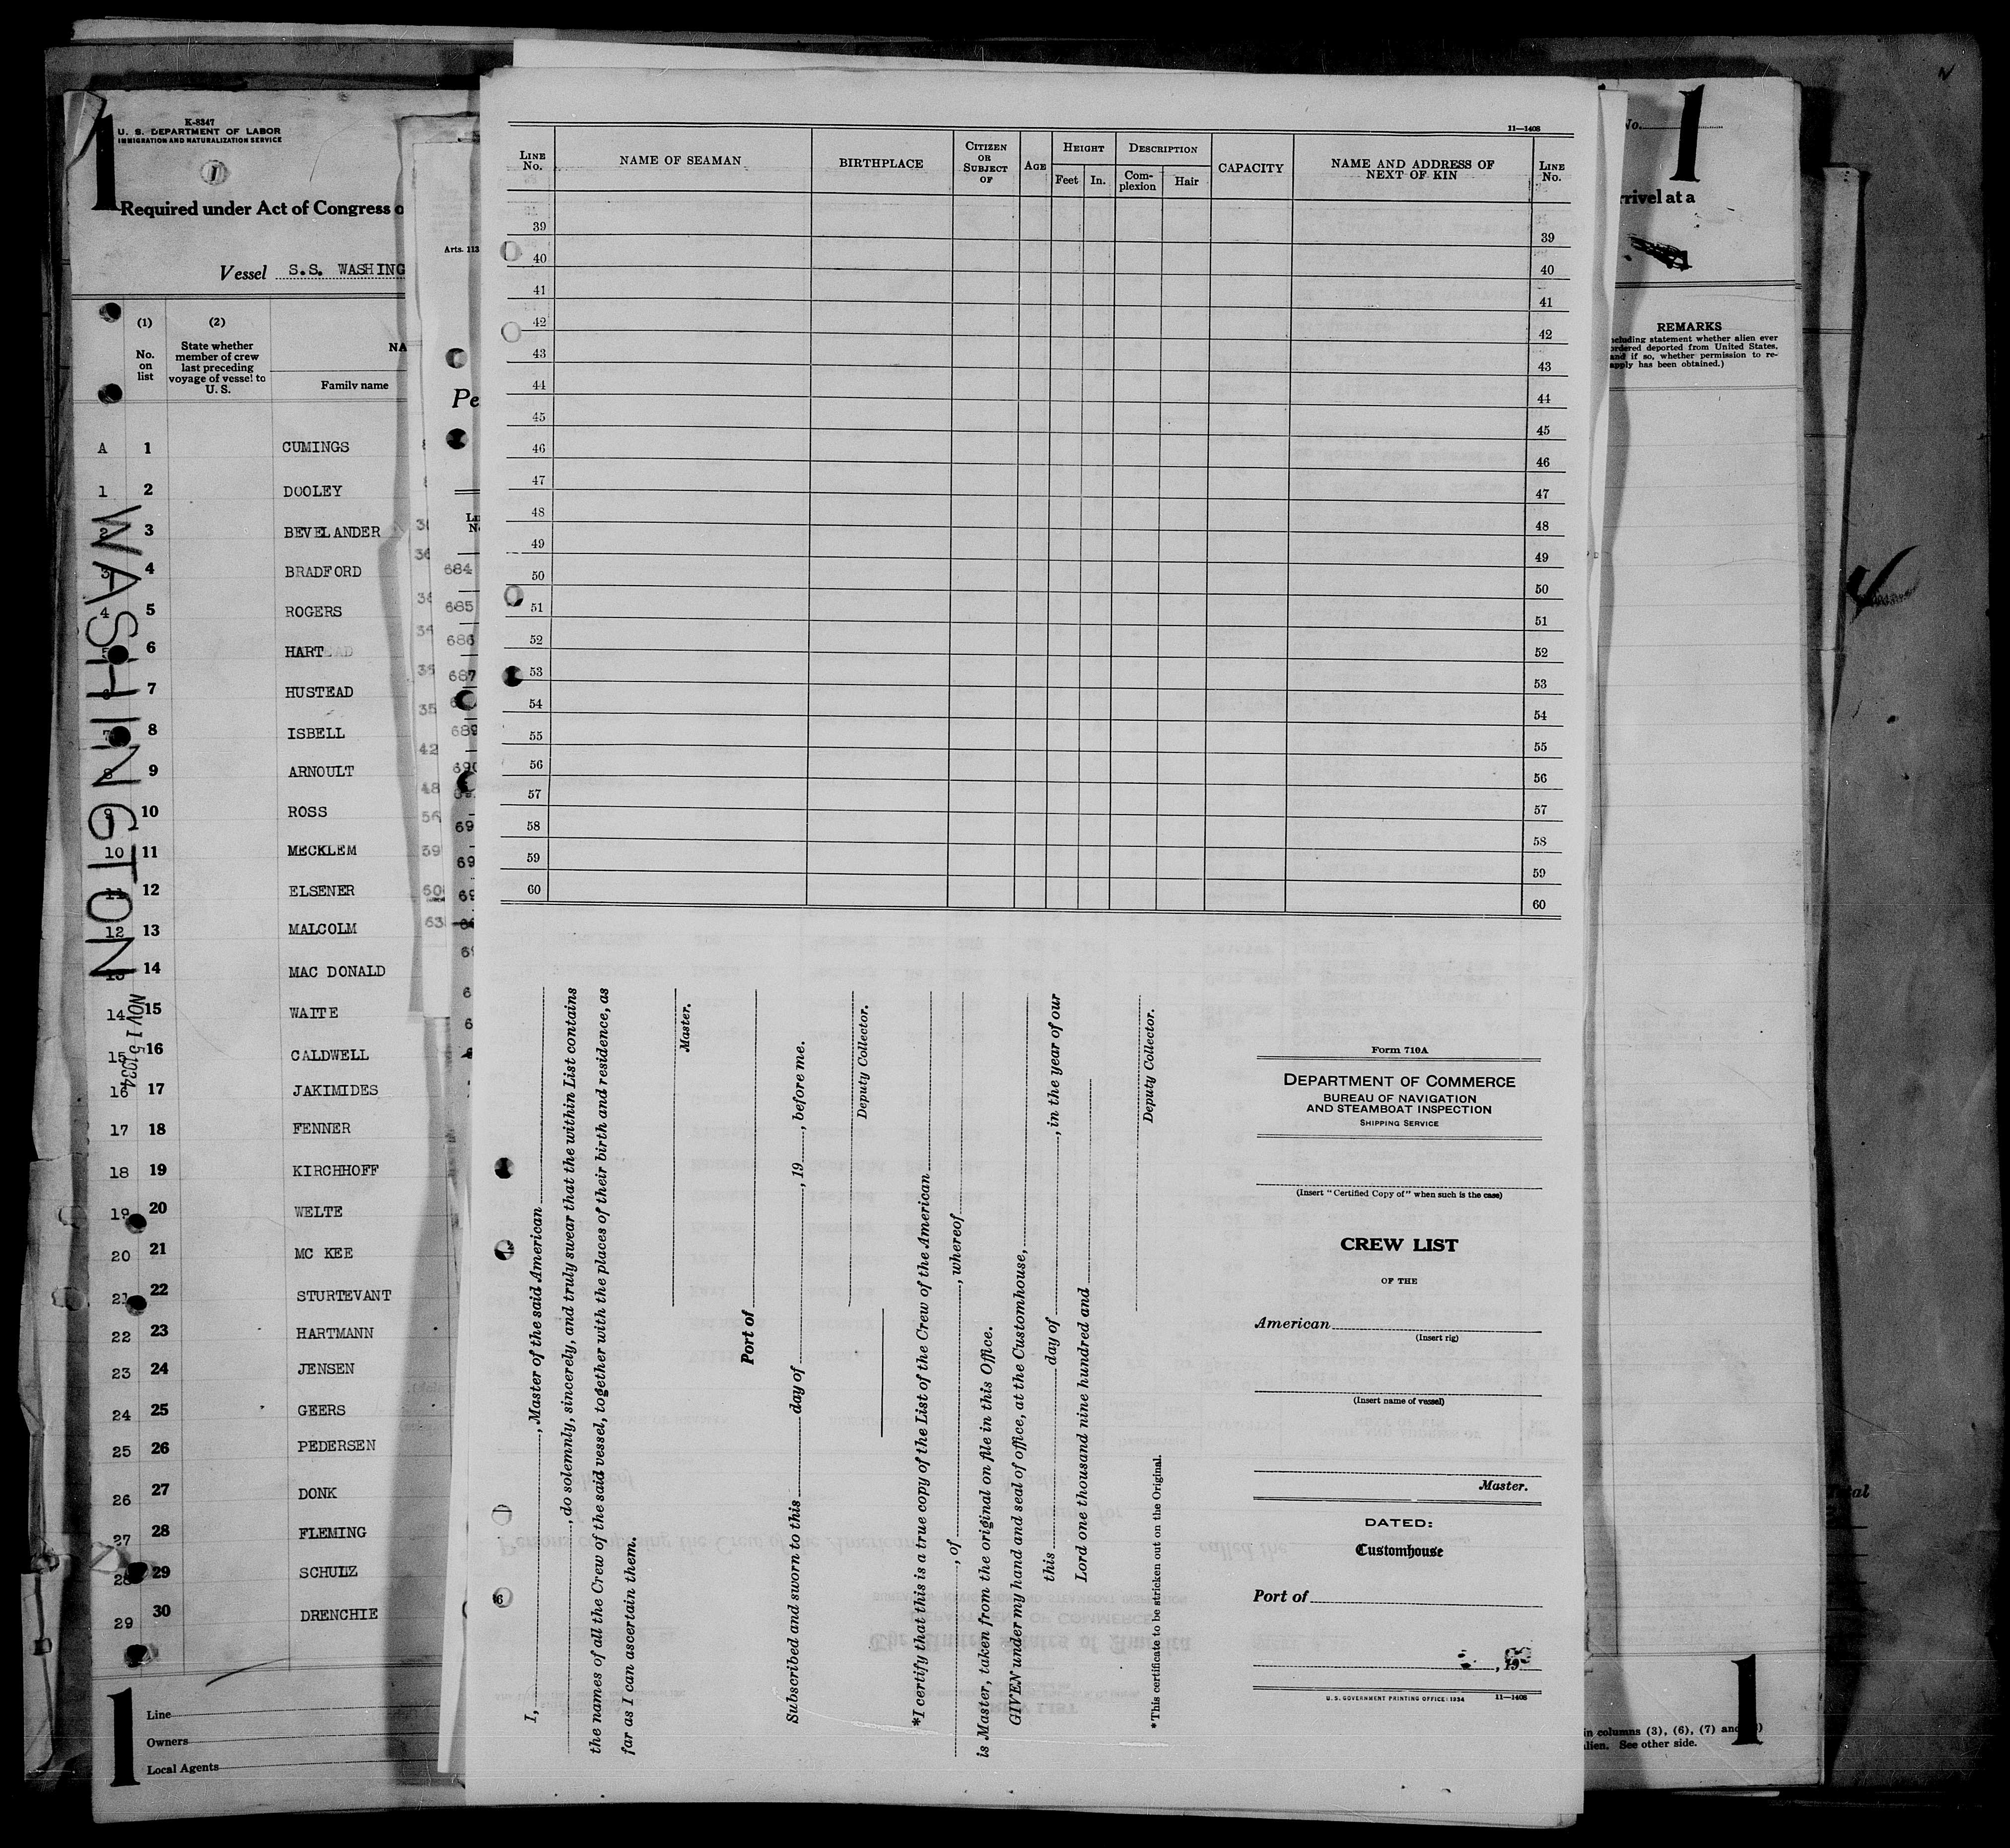 K-8347
U. S. DEPARTMENT OF LABOR
IMMIGRATION AND NATURALIZATION SERVICE
1
1
Required under Act of Congress o
Vessel S.S. WASHING
(1)
No.
on
list
(2)
State whether
member of crew
last preceding
voyage of vessel to
U. S.
NA
Family name
A 1 CUMINGS
1 2 DOOLEY
2 3 BEVELANDER
3 4 BRADFORD
4 5 ROGERS
6 HART
7 HUSTEAD
7 8 ISBELL
8 9 ARNOULT
9 10 ROSS
10 11 MECKLEM
11 12 ELSENER
12 13 MALCOLM
13 14 MAC DONALD
14 15 WAITE
15 16 CALDWELL
16 17 JAKIMIDES
17 18 FENNER
18 19 KIRCHHOFF
19 20 WELTE
20 21 MC KEE
21 22 STURTEVANT
22 23 HARTMANN
23 24 JENSEN
24 25 GEERS
25 26 PEDERSEN
26 27 DONK
27 28 FLEMING
28 29 SCHULZ
29 30 DRENCHIE
WASHINGTON
NOV 15 1934
1
Line
Owners
Local Agents
Arts. 113
Pe
684
685
686
687
689
42
48
56
59
60
63
11—1408
LINE
No.
NAME OF SEAMAN
BIRTHPLACE
CITIZEN
OR
SUBJECT
OF
AGE
HEIGHT
Feet
In.
DESCRIPTION
Com-
plexion
Hair
CAPACITY
NAME AND ADDRESS OF
NEXT OF KIN
LINE
No.
39 39
40 40
41 41
42 42
43 43
44 44
45 45
46 46
47 47
48 48
49 49
50 50
51 51
52 52
53 53
54 54
55 55
56 56
57 57
58 58
59 59
60 60
I, , Master of the said American
, do solemnly, sincerely, and truly swear that the within List contains
the names of all the Crew of the said vessel, together with the places of their birth and residence, as
far as I can ascertain them.
Master.
Port of
Subscribed and sworn to this day of , 19 , before me.
Deputy Collector.
*I certify that this is a true copy of the List of the Crew of the American
, of , whereof
is Master, taken from the original on file in this Office.
GIVEN under my hand and seal of office, at the Customhouse,
this day of , in the year of our
Lord one thousand nine hundred and
Deputy Collector.
*This certificate to be stricken out on the Original.
Form 710A
DEPARTMENT OF COMMERCE
BUREAU OF NAVIGATION
AND STEAMBOAT INSPECTION
SHIPPING SERVICE
(Insert "Certified Copy of" when such is the case)
CREW LIST
OF THE
American
(Insert rig)
(Insert name of vessel)
Master.
DATED:
Customhouse
Port of
, 19
U. S. GOVERNMENT PRINTING OFFICE: 1934 11—1408
No.
1
rrival at a
REMARKS
including statement whether alien ever
ordered deported from United States,
and if so, whether permission to re-
apply has been obtained.)
in columns (3), (6), (7) and
alien. See other side.
1